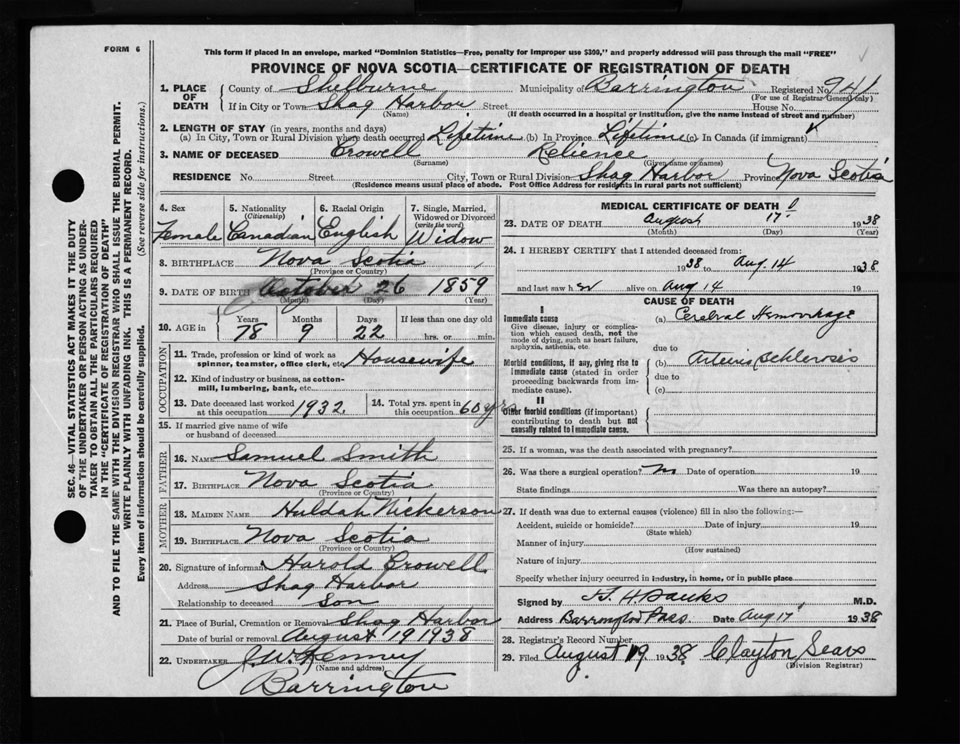 FORM 6
This form if placed in an envelope, marked "Dominion Statistics—Free, penalty for improper use $300," and properly addressed will pass through the mail "FREE"
PROVINCE OF NOVA SCOTIA—CERTIFICATE OF REGISTRATION OF DEATH
SEC. 46—VITAL STATISTICS ACT MAKES IT THE DUTY
OF THE UNDERTAKER OR PERSON ACTING AS UNDER-
TAKER TO OBTAIN ALL THE PARTICULARS REQUIRED
IN THE "CERTIFICATE OF REGISTRATION OF DEATH"
AND TO FILE THE SAME WITH THE DIVISION REGISTRAR WHO SHALL ISSUE THE BURIAL PERMIT.
WRITE PLAINLY WITH UNFADING INK. THIS IS A PERMANENT RECORD.
Every item of information should be carefully supplied. (See reverse side for instructions.)
1. PLACE OF DEATH
County of Shelburne Municipality of Barrington Registered No. 941
(For use of Registrar-General only)
If in City or Town Shag Harbor Street House No.
(Name) (If death occurred in a hospital or institution, give the name instead of street and number)
2. LENGTH OF STAY (in years, months and days)
(a) In City, Town or Rural Division where death occurred Lifetime (b) In Province Lifetime (c) In Canada (if immigrant)
3. NAME OF DECEASED Crowell Relience
(Surname) (Given name or names)
RESIDENCE No. Street City, Town or Rural Division Shag Harbor Province Nova Scotia
(Residence means usual place of abode. Post Office Address for residents in rural parts not sufficient)
4. Sex Female
5. Nationality (Citizenship) Canadian
6. Racial Origin English
7. Single, Married, Widowed or Divorced (write the word) Widow
8. BIRTHPLACE Nova Scotia
(Province or Country)
9. DATE OF BIRTH October 26 1859
(Month) (Day) (Year)
10. AGE in Years 78 Months 9 Days 22 If less than one day old hrs. or min.
OCCUPATION
11. Trade, profession or kind of work as spinner, teamster, office clerk, etc. Housewife
12. Kind of industry or business, as cotton-mill, lumbering, bank, etc.
13. Date deceased last worked at this occupation 1932
14. Total yrs. spent in this occupation 60 yrs
15. If married give name of wife or husband of deceased
FATHER
16. NAME Samuel Smith
17. BIRTHPLACE Nova Scotia
(Province or Country)
MOTHER
18. MAIDEN NAME Huldah Nickerson
19. BIRTHPLACE Nova Scotia
(Province or Country)
20. Signature of informant Harold Crowell
Address Shag Harbor
Relationship to deceased Son
21. Place of Burial, Cremation or Removal Shag Harbor
Date of burial or removal August 19 1938
22. UNDERTAKER J. W. Kenney
(Name and address)
Barrington
MEDICAL CERTIFICATE OF DEATH
23. DATE OF DEATH August 17 1938
(Month) (Day) (Year)
24. I HEREBY CERTIFY that I attended deceased from:
1938 to Aug. 14 1938
and last saw her alive on Aug 14 19
CAUSE OF DEATH
I
Immediate cause
Give disease, injury or complication which caused death, not the mode of dying, such as heart failure, asphyxia, asthenia, etc.
(a) Cerebral Hemorrhage
due to
Morbid conditions, if any, giving rise to immediate cause (stated in order proceeding backwards from immediate cause).
(b) Arterio Schlerosis
due to
(c)
II
Other morbid conditions (if important) contributing to death but not causally related to immediate cause.
25. If a woman, was the death associated with pregnancy?
26. Was there a surgical operation? no Date of operation 19
State findings Was there an autopsy?
27. If death was due to external causes (violence) fill in also the following:—
Accident, suicide or homicide? Date of injury 19
(State which)
Manner of injury
(How sustained)
Nature of injury
Specify whether injury occurred in industry, in home, or in public place
Signed by H. H Banks M.D.
Address Barrington Pass. Date Aug 17 1938
28. Registrar's Record Number
29. Filed August 19 1938 Clayton Sears
(Division Registrar)